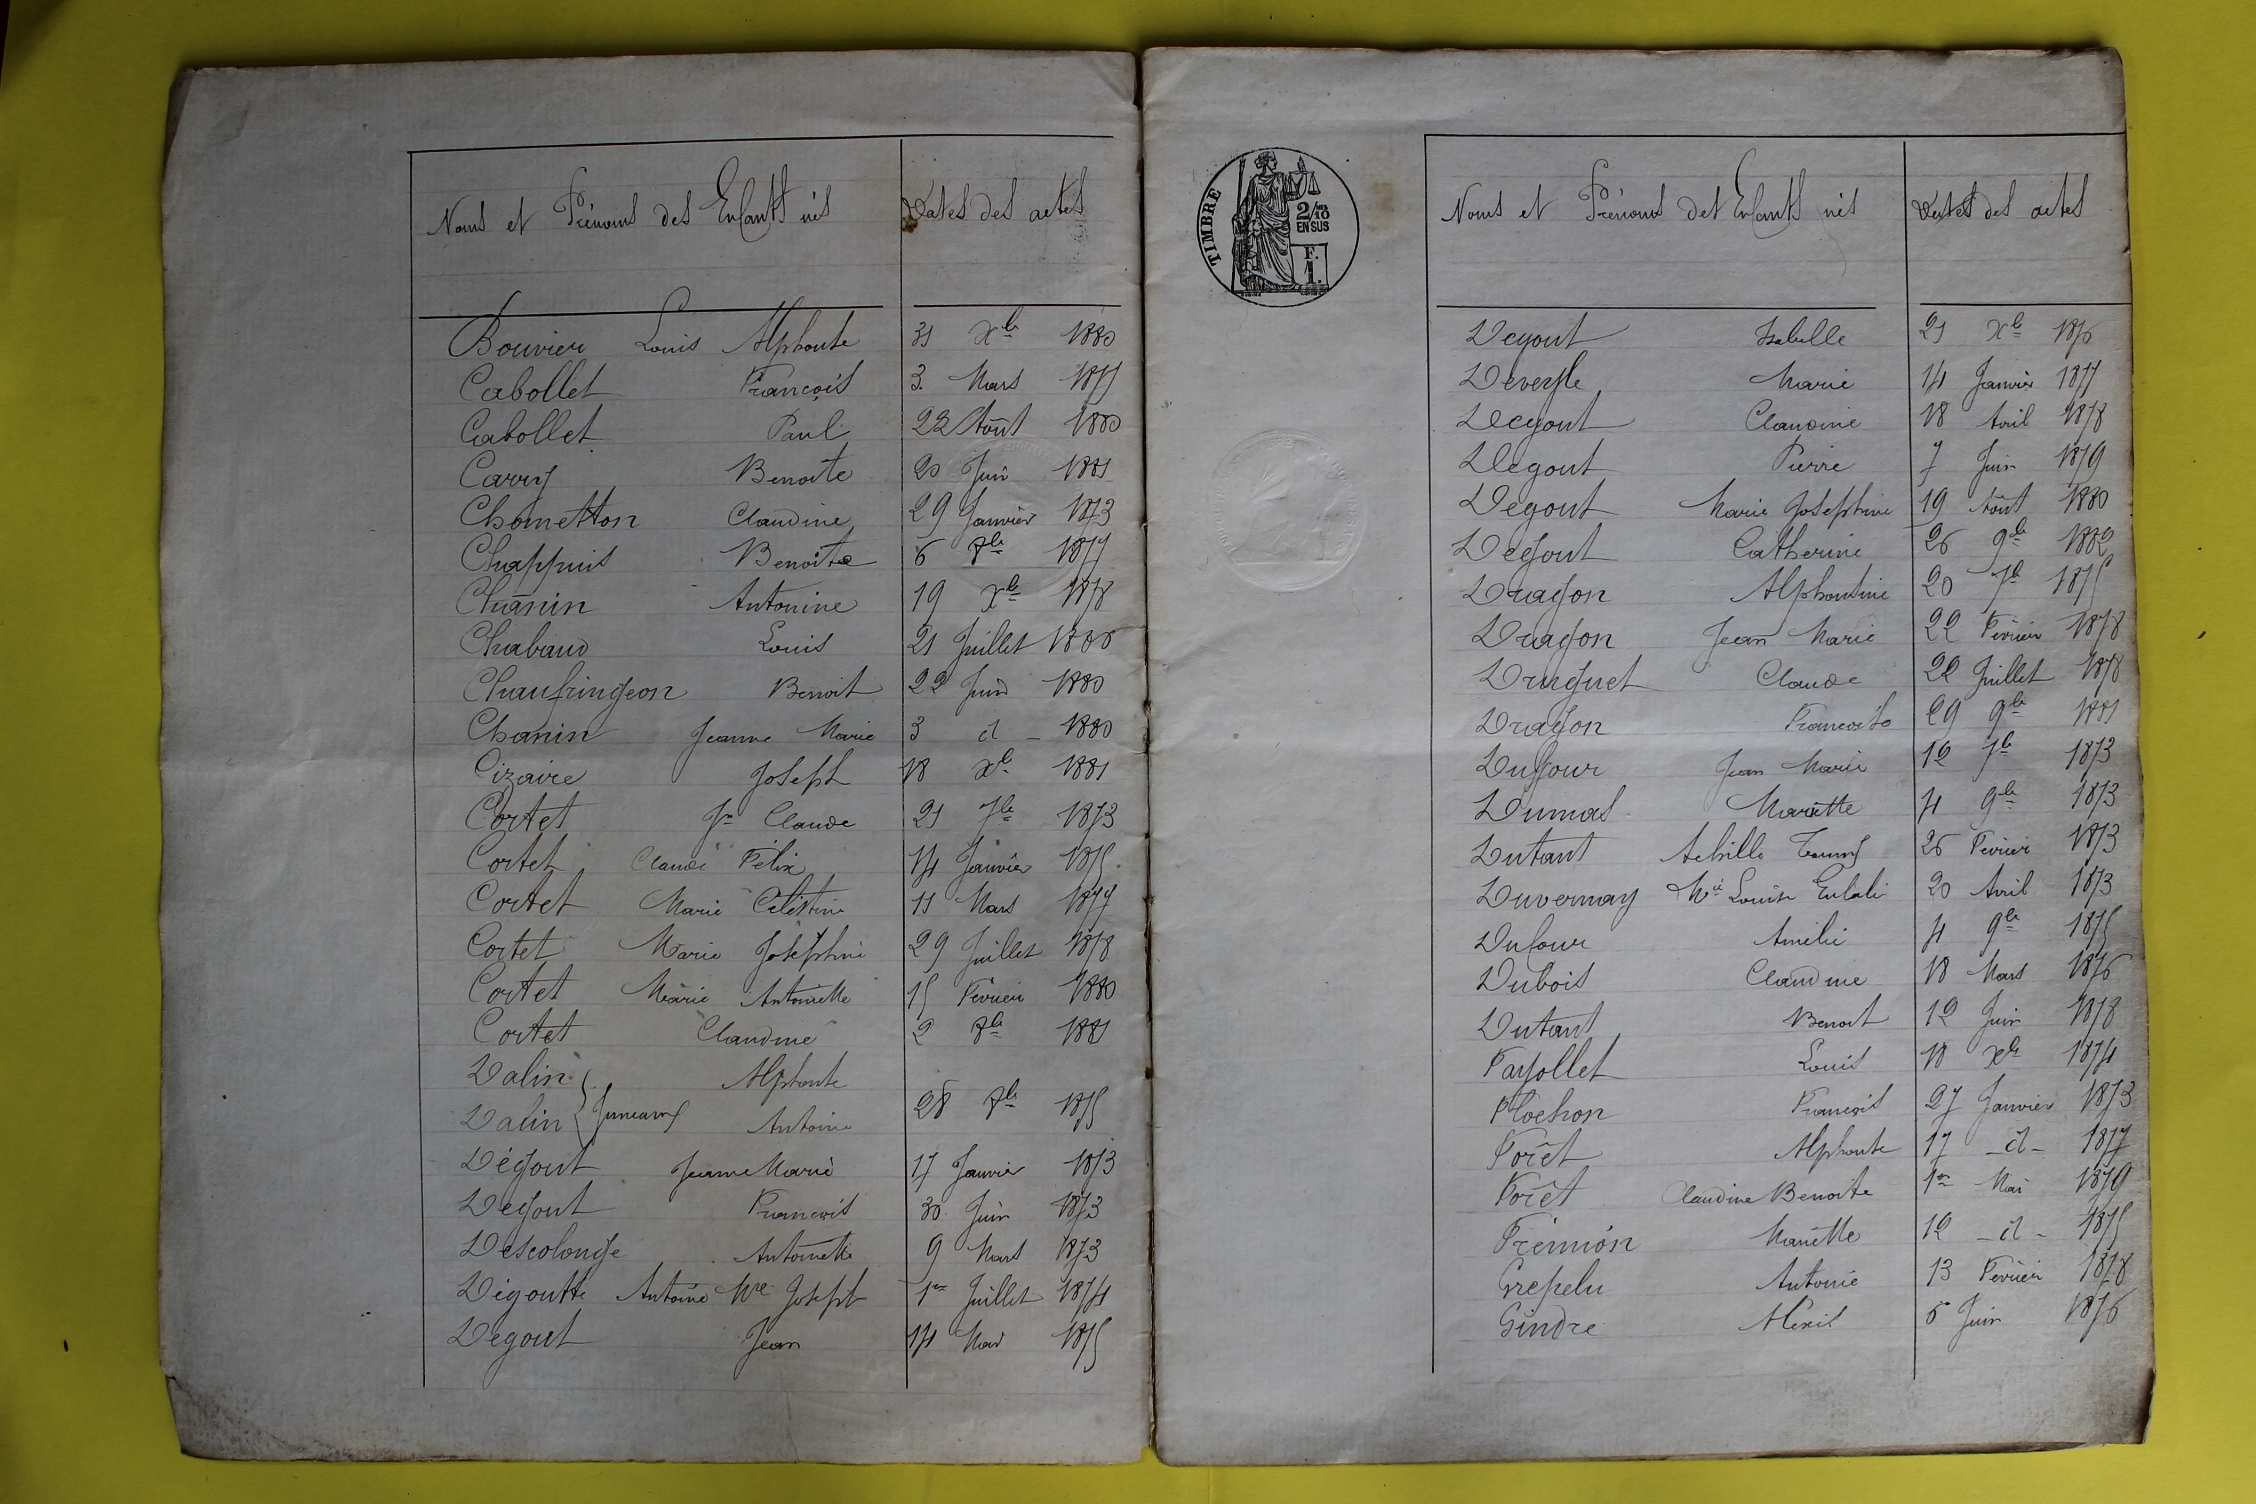 Noms et Prénoms des Enfants nés Dates des actes
Bouvier Louis Alphonse 31 Xbre 1880
Cabollet François 3 Mars 1877
Cabollet Paul 22 Août 1880
Carry Benoite 20 Juin 1881
Chometton Claudine 29 Janvier 1873
Chappuis Benoite 6 8bre 1877
Chanin Antonine 19 Xbre 1878
Chabaud Louis 21 Juillet
Chaufringeon Benoit 22 Juin 1880
Chanin Jeanne Marie 3 d - 1880
Cizaire Joseph 18 Xbre 1881
Cortet Jn Claude 21 7bre 1873
Cortet Claude Félix 14 Janvier 1875
Cortet Marie Célestine 11 Mars 1877
Cortet Marie Joséphine 29 Juillet 1878
Cortet Marie Antoinette 15 Février 1880
Cortet Claudine 2 8bre 1881
Dalin Alphonse
Jumeaux 28 8bre 1875
Dalin Antoine
Dégout Jeanne Marie 17 Janvier 1873
Degout Francois 30 Juin 1873
Descolonge Antoinette 9 Mars 1873
Dégoutte Antoine Mie Joseph 1er Juillet 1874
Degout Jean 14 Mai 1875
TIMBRE
2/10
EN SUS
F.
1.
Noms et Prénoms des Enfants nés Dates des actes
Degout Isabelle 21 Xbre 1876
Deveyle Marie 14 Janvier 1877
Degout Claudine 18 Avril 1878
Degout Pierre 7 Juin 1879
Degout Marie Joséphine 19 Août 1880
Degout Catherine 26 9bre 1882
Dragon Alphonsine 20 7bre 1875
Dragon Jean Marie 22 Février 1878
Draguet Claude 22 Juillet 1878
Dragon 29 9bre 1881
Duffour Jean Marie 12 7bre 1873
Dumas Mariette 4 9bre 1873
Dutant Achille 26 Février 1873
Duvernay Mie Louise Eulalie 20 Avril 1873
Dufour Amélie 4 9bre 1875
Dubois Claudine 18 Mars 1876
Dutant Benoit 12 Juin 1878
Fayollet Louis 18 Xbre 1874
Flochon François 27 Janvier 1873
Forêt Alphonse 17 - d - 1877
Forêt Claudine Benoite 1er Mai 1879
Frémion Mariette 12 - d - 1875
Grepelu Antonie 13 Février 1878
Gindre Alexis 6 Juin 1876